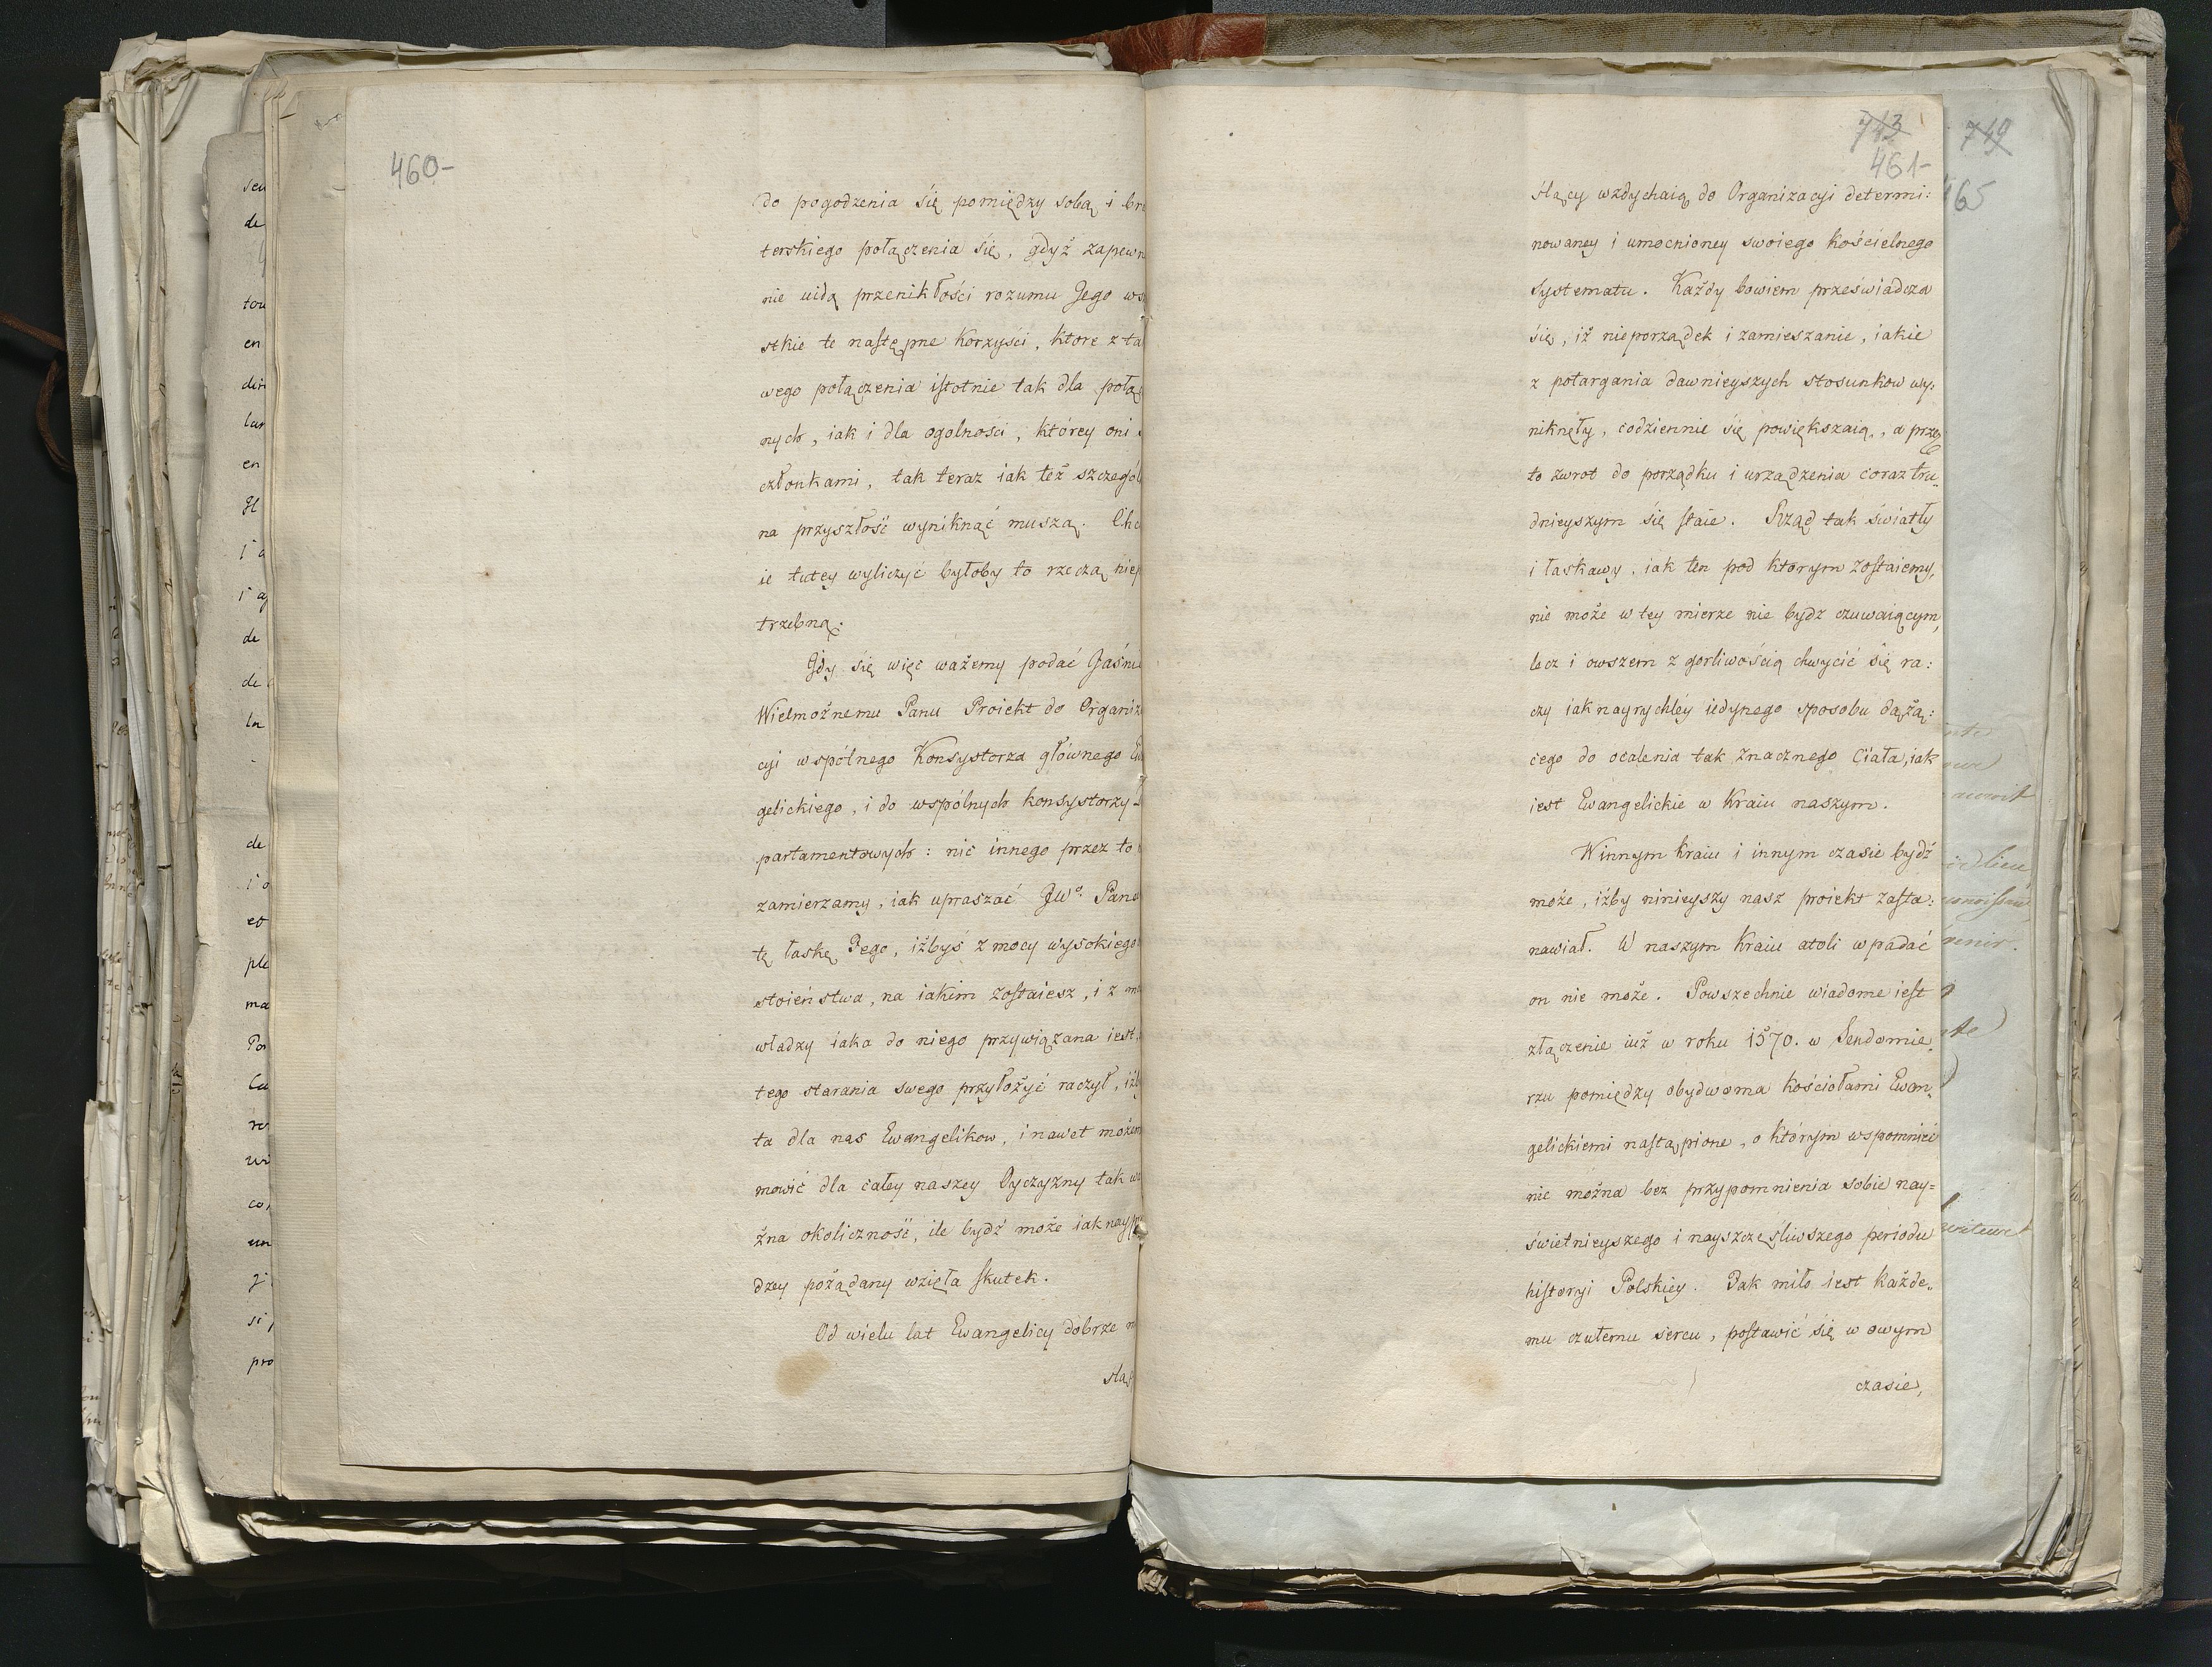 460-
do pogodzenia się pomiędzy sobą i bra
terskiego połączenia się, gdyż zapewn
nie uidą przenikłości rozumu Jego wsz
stkie te naſtępne korzyści, ktore z ta
wego połączenia iſtotnie tak dla połą
nych, iak i dla ogolności, którey oni
członkami, tak teraz iak też szczegól
na przyszłość wyniknąć muszą. Chc
ie tutey wyliczyć byłoby to rzeczą nie
trzebną.
Gdy się więc ważemy podać Jaśnie
Wielmożnemu Panu Proiekt do Organiza
cyi wspólnego Konsystorza głównego Ew
gelickiego, i do wspólnych konsystorzy
partamentowych: nic innego przez to
zamierzamy, iak upraszać JWo. Pana
tę łaskę Jego, iżbyś z mocy wysokiego
stoieństwa, na iakim zoſtaiesz, i z
władzy iaka do niego przywiązana iest,
tego starania swego przyłożyć raczył, iżb
ta dla nas Ewangelikow, i nawet możem
mowić dla całey naszey Oyczyzny tak wa
żna okoliczność, ile bydź może iak nayprę
dzey pożądany wzięła ſkutek.
Od wielu lat Ewangelicy dobrze m
slą
713
461-
ślący wzdychaią do Organizacyi determi:
nowaney i umocnioney swoiego kościelnego
Systematu. Każdy bowiem przeświadcza
się, iż nieporządek i zamieszanie, iakie
z potargania dawnieyszych stosunkow wy:
niknęły, codziennie się powiększaią, a przez
to zwrot do porządku i urządzenia coraz tru:
dnieyszym się ſtaie. Rząd tak światły
i łaskawy, iak ten pod ktorym zoſtaiemy,
nie może w tey mierze nie bydz czuwaiącym,
lecz i owszem z gorliwością chwycić się ra:
czy iak nayrychléy iedynego sposobu dążą:
cego do ocalenia tak znacznego Ciała, iak
iest Ewangelickie w Kraiu naszym.
W innym kraiu i innym czasie bydź
może, iżby ninieyszy nasz proiekt zaſta:
nawiał. W naszym Kraiu atoli wpadać
on nie może. Powszechnie wiadome ieſt
złączenie iuż w roku 1570. w Sendomie:
rzu pomiędzy obydwoma kościołami Ewan:
gelickiemi naſtąpione, o którym wspomnieć
nie można bez przypomnienia sobie nay=
świetnieyszego i nayszczęśliwszego periodu
hiſtoryi Polskiey. Jak miło iest każde:
mu czułemu sercu, poſtawić się w owym
czasie,
719
465